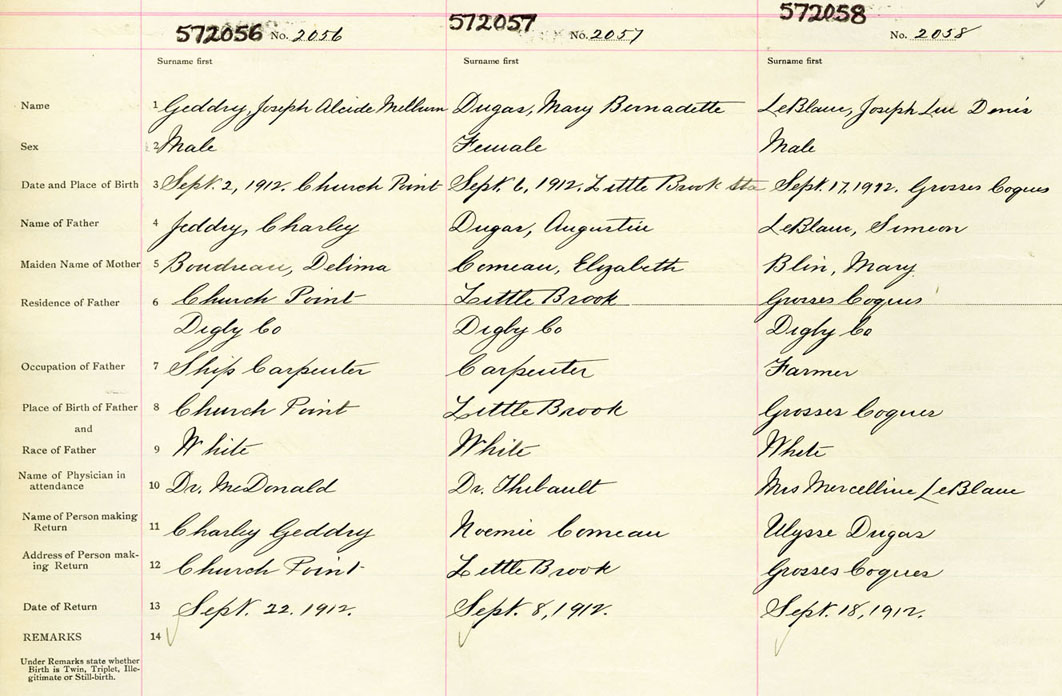 572056 No. 2056 572057 No. 2057 572058 No. 2058
Surname first Surname first Surname first
Name 1 Geddry, Joseph Alcide Melburn Dugas, Mary Bernadette LeBlanc, Joseph Luc Denis
Sex 2 Male Female Male
Date and Place of Birth 3 Sept. 2, 1912. Church Point Sept. 6, 1912. Little Brook Sta Sept. 17, 1912. Grosses Coques
Name of Father 4 Jeddry, Charley Dugas, Augustin LeBlanc, Simeon
Maiden Name of Mother 5 Boudreau, Delima Comeau, Elizabeth Blin, Mary
Residence of Father 6 Church Point Little Brook Grosses Coques
Digby Co Digby Co Digby Co
Occupation of Father 7 Ship Carpenter Carpenter Farmer
Place of Birth of Father 8 Church Point Little Brook Grosses Coques
and
Race of Father 9 White White White
Name of Physician in
attendance 10 Dr. McDonald Dr. Thibault Mrs Mercelline LeBlanc
Name of Person making
Return 11 Charley Geddry Noemie Comeau Ulysse Dugas
Address of Person mak-
ing Return 12 Church Point Little Brook Grosses Coques
Date of Return 13 Sept. 22. 1912. Sept. 8, 1912. Sept. 18, 1912.
REMARKS 14
Under Remarks state whether
Birth is Twin, Triplet, Ille-
gitimate or Still-birth.